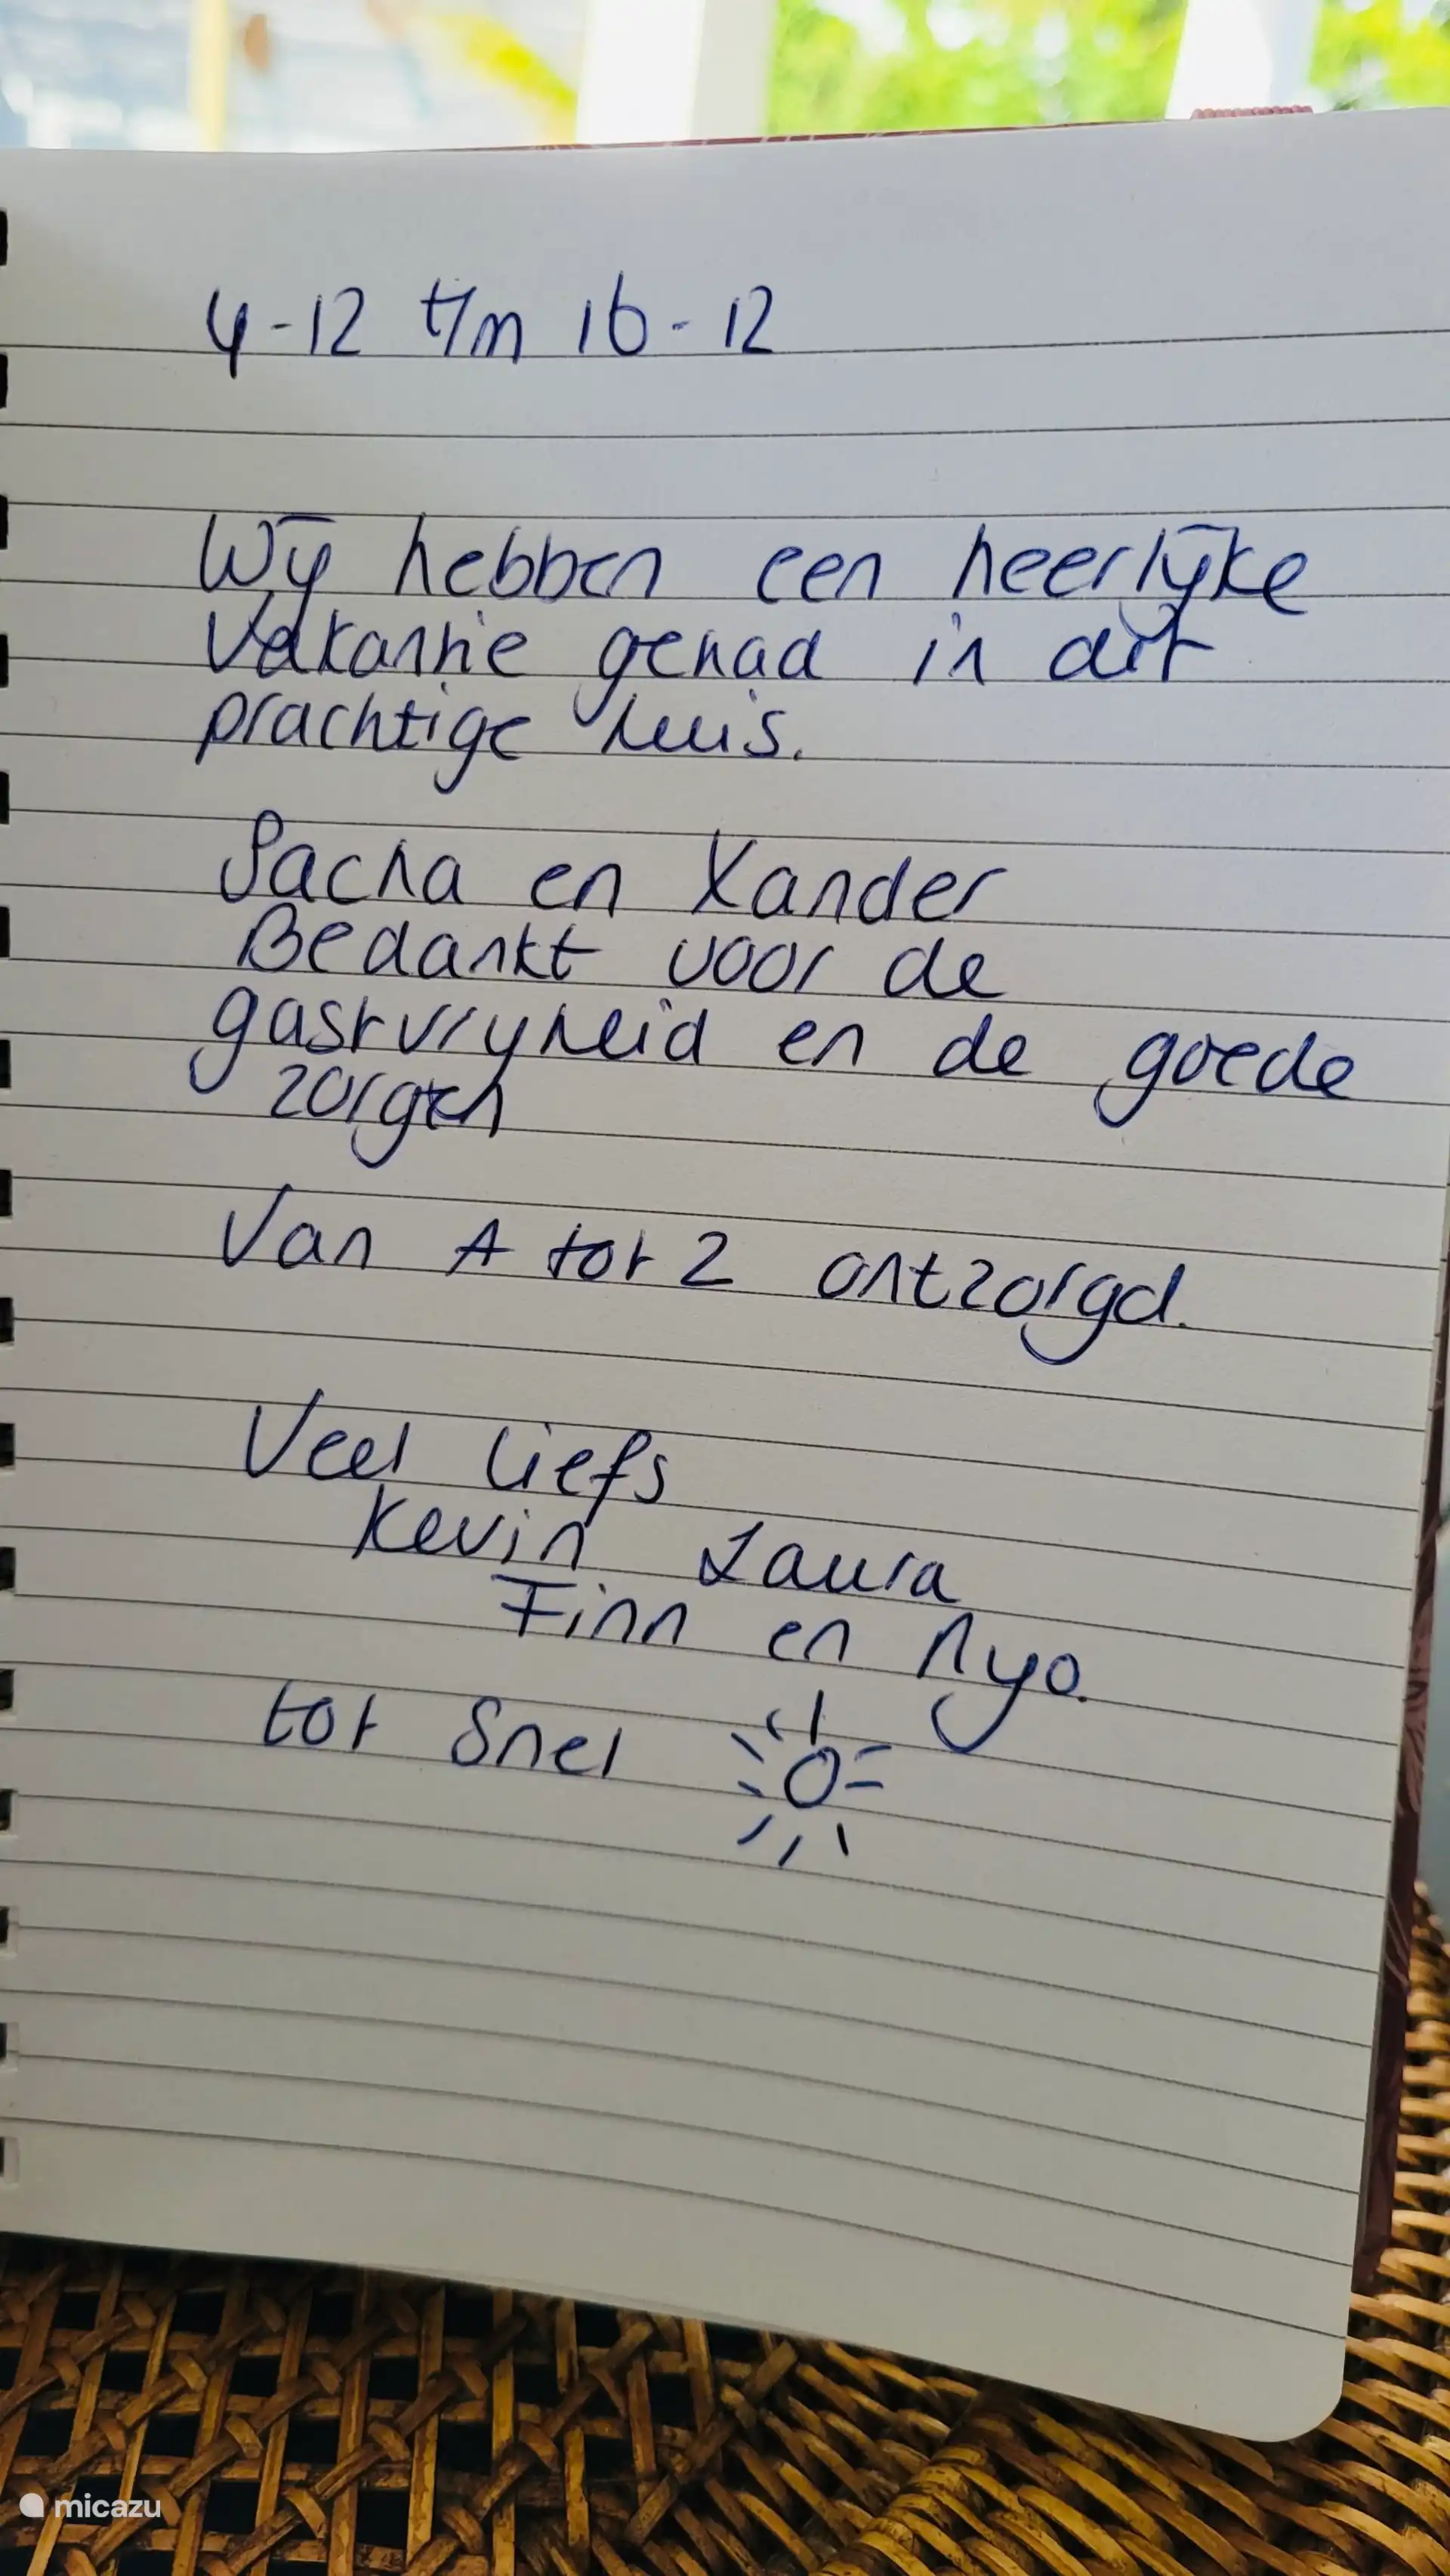 4-12 t/m 16-12
Wij hebben een heerlijke
vakantie gehad in dit
prachtige huis.
Sacha en Xander
Bedankt voor de
gastvrijheid en de goede
zorgen
Van A tot Z ontzorgd.
Veel liefs
Kevin Laura
Finn en Nyo.
tot snel
micazu